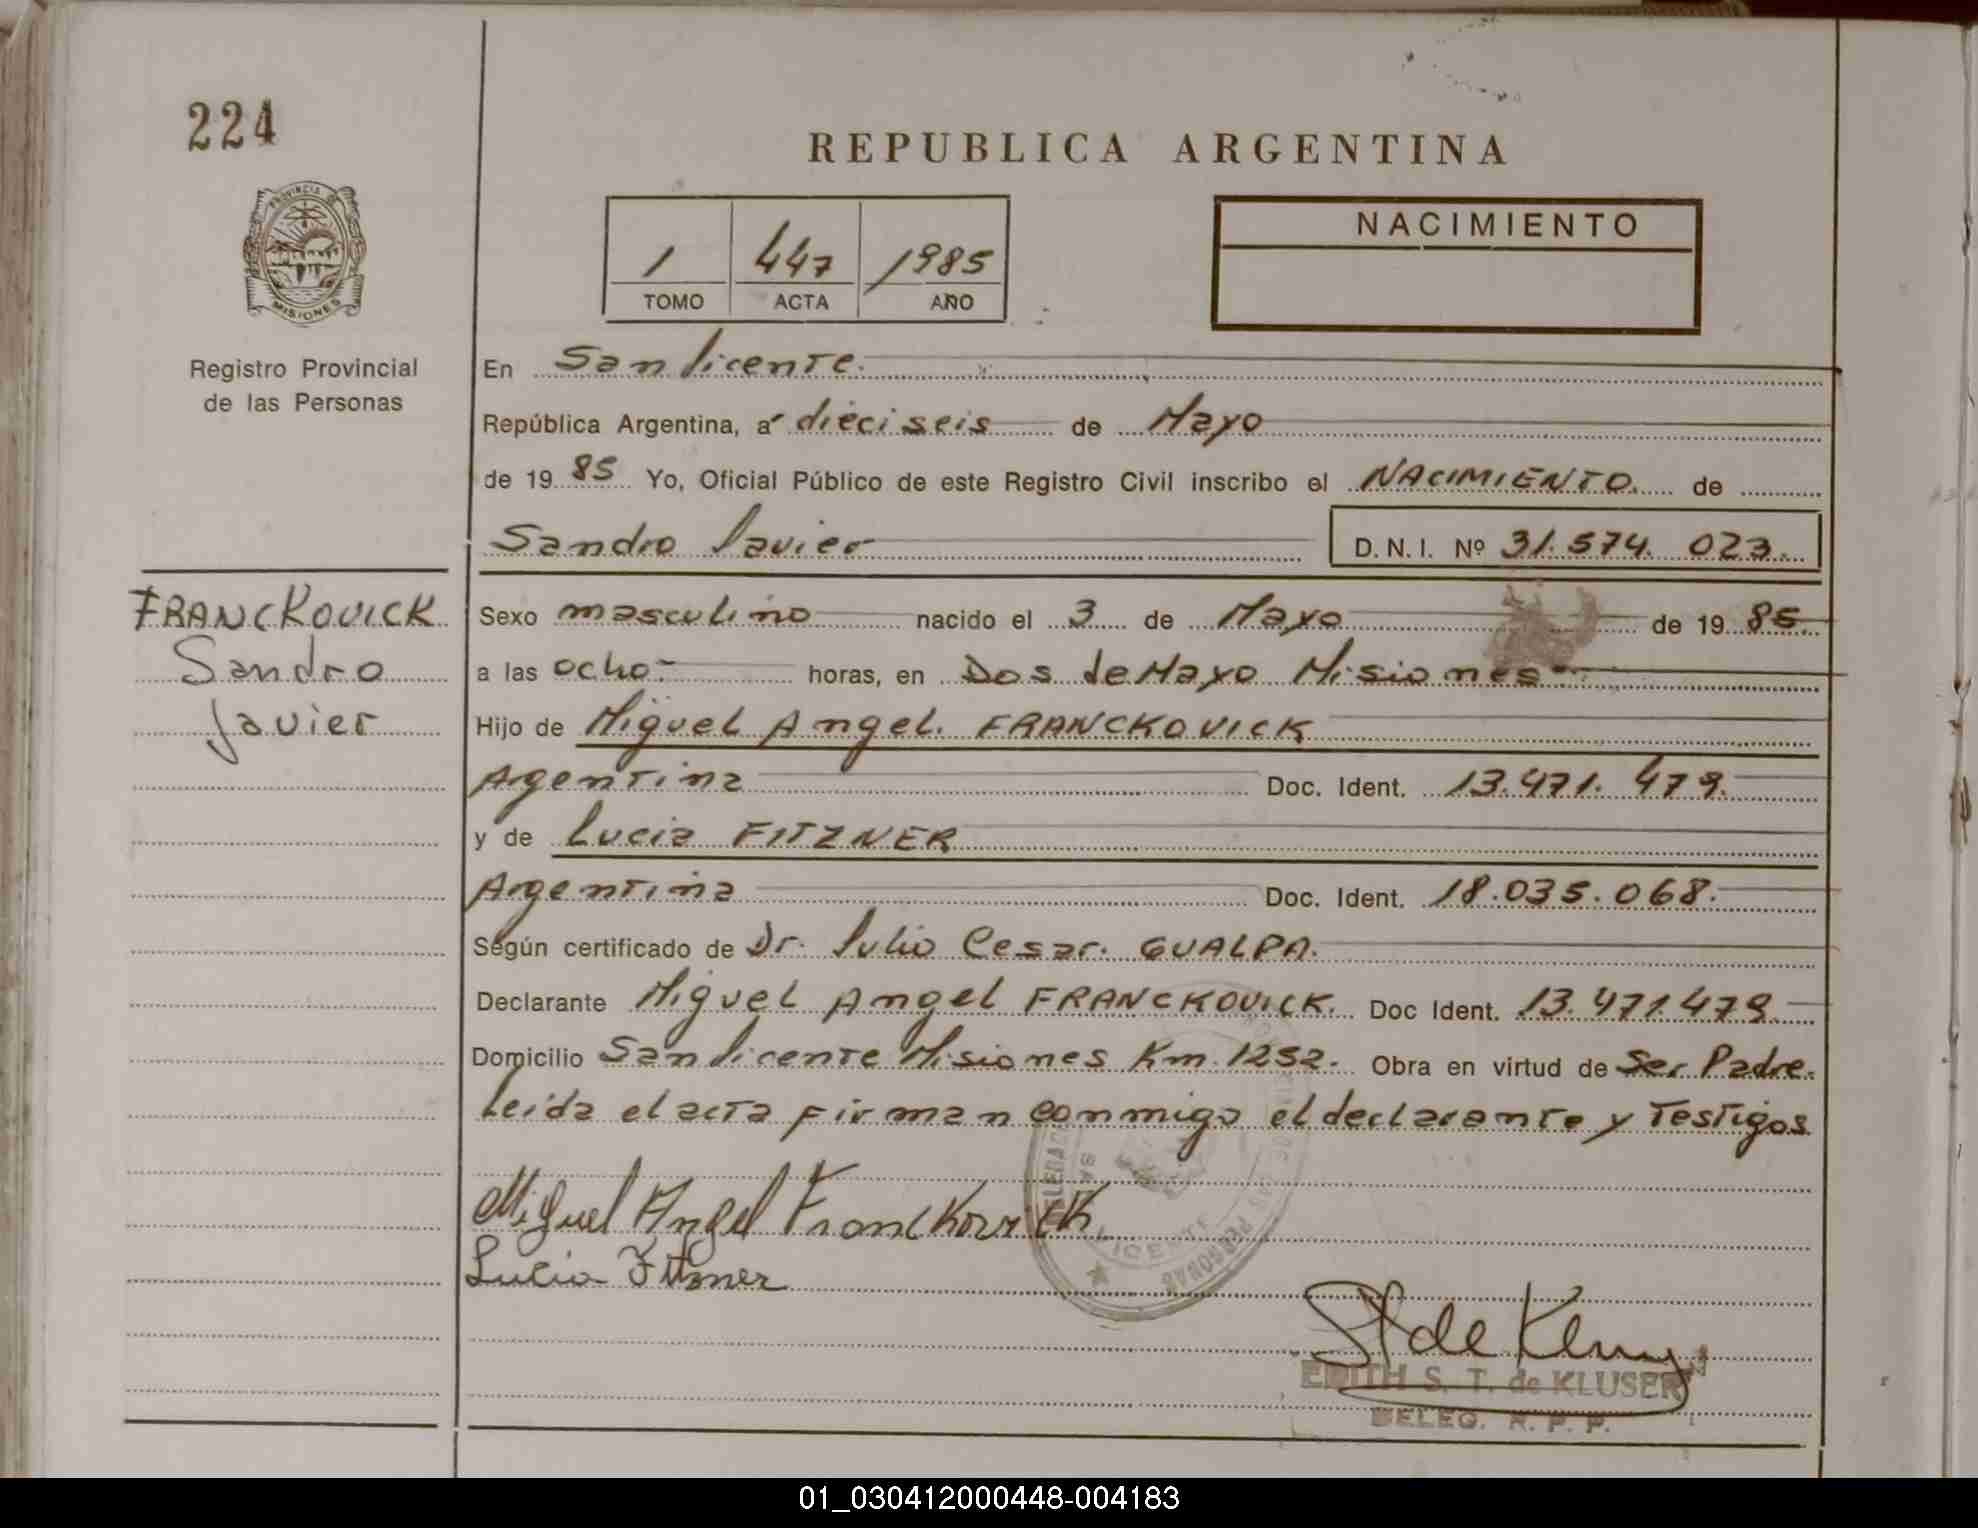 224
PROVINCIA DE
MISIONES
Registro Provincial
de las Personas
FRANCKOVICK
Sandro
Javier
REPUBLICA ARGENTINA
1 447 1985
TOMO ACTA AÑO
NACIMIENTO
En San Vicente.
República Argentina, a dieciseis de Mayo
de 19 85 Yo, Oficial Público de este Registro Civil inscribo el NACIMIENTO. de
Sandro Javier D.N.I. Nº 31.574.023.
Sexo masculino nacido el 3 de Mayo de 19 85.
a las ocho.- horas, en Dos de Mayo Misiones.-
Hijo de Miguel Angel. FRANCKOVICK
Argentina Doc. Ident. 13.471.479.
y de Lucia FITZNER
Argentina Doc. Ident. 18.035.068.
Según certificado de Dr. Julio Cesar. GUALPA.
Declarante Miguel Angel FRANCKOVICK. Doc Ident. 13.471.479.
Domicilio San Vicente Misiones Km. 1252. Obra en virtud de Ser Padre.
Leida el acta firman conmigo el declarante y testigos
Miguel Angel Franckovick
Lucia Fitzner
VICENTE
PERSONAS
EDITH S. T. de KLUSER
DELEG. R. P. P.
01_030412000448-004183